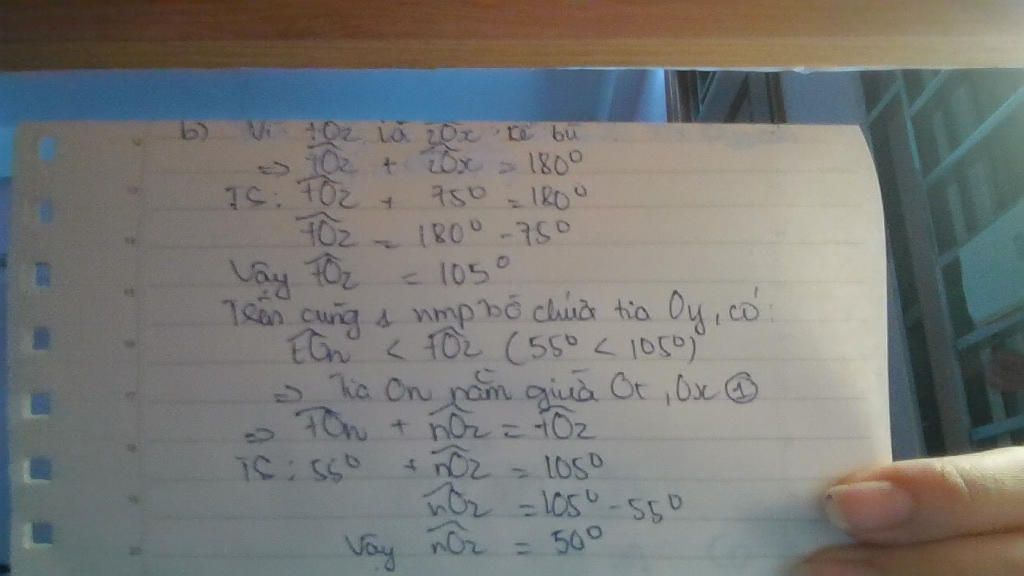 b) Vì tOz và zOx kề bù
=> tOz + zOx = 180°
TS: tOz + 75° = 180°
tOz = 180° - 75°
Vậy tOz = 105°
Trên cùng 1 nmp bờ chứa tia Oy, có:
tOn < tOz (55° < 105°)
=> Tia On nằm giữa Ot, Ox ①
=> tOn + nOz = tOz
TS: 55° + nOz = 105°
nOz = 105° - 55°
Vậy nOz = 50°